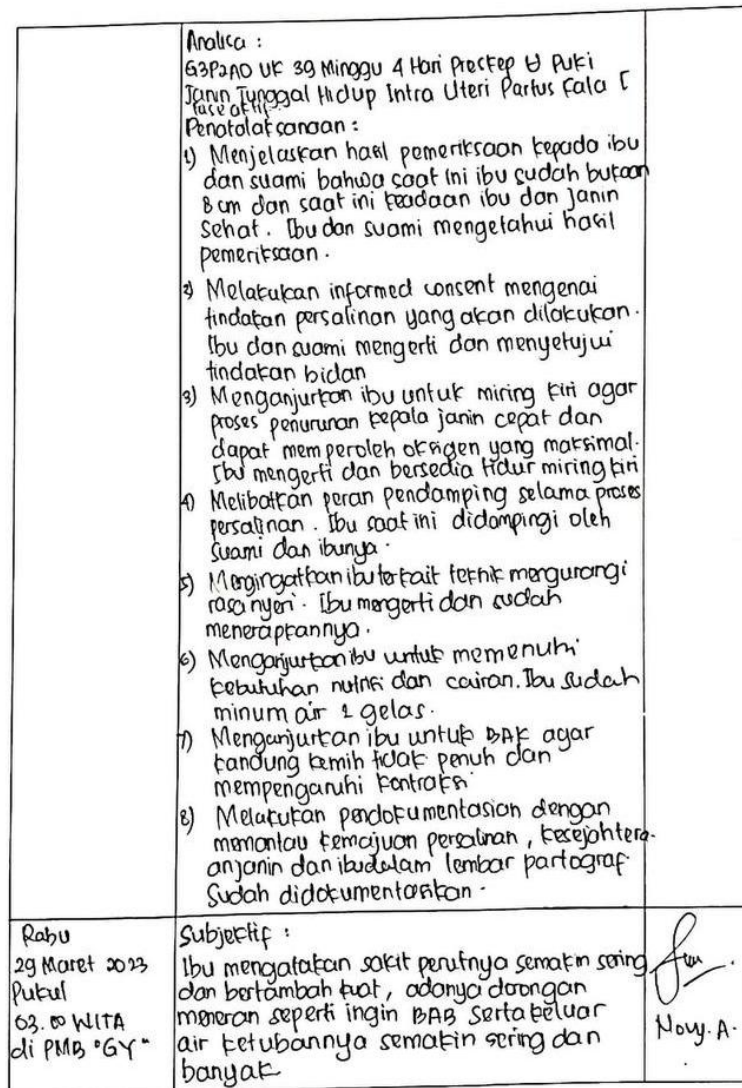 Analisa :
G3P2A0 UK 39 Minggu 4 Hari Preskep U Puki
Janin Tunggal Hidup Intra Uteri Partus Kala I
fase aktif
Penatalaksanaan :
1) Menjelaskan hasil pemeriksaan kepada ibu
dan suami bahwa saat ini ibu sudah bukaan
8 cm dan saat ini keadaan ibu dan janin
Sehat. Ibu dan suami mengetahui hasil
pemeriksaan.
2) Melakukan informed consent mengenai
tindakan persalinan yang akan dilakukan.
Ibu dan suami mengerti dan menyetujui
tindakan bidan
3) Menganjurkan ibu untuk miring kiri agar
proses penurunan kepala janin cepat dan
dapat memperoleh oksigen yang maksimal.
Ibu mengerti dan bersedia tidur miring kiri
4) Melibatkan peran pendamping selama proses
persalinan. Ibu saat ini didampingi oleh
suami dan ibunya.
5) Mengingatkan ibu terkait teknik mengurangi
rasa nyeri. Ibu mengerti dan sudah
menerapkannya.
6) Menganjurkan ibu untuk memenuhi
kebutuhan nutrisi dan cairan. Ibu sudah
minum air 1 gelas.
7) Menganjurkan ibu untuk BAK agar
kandung kemih tidak penuh dan
mempengaruhi kontraksi
8) Melakukan pendokumentasian dengan
memantau kemajuan persalinan, kesejahtera-
an janin dan ibu dalam lembar partograf.
Sudah didokumentasikan.
Rabu
29 Maret 2023
Pukul
03.00 WITA
di PMB "GY"
Subjektif :
Ibu mengatakan sakit perutnya semakin sering
dan bertambah kuat, adanya dorongan
meneran seperti ingin BAB serta keluar
air ketubannya semakin sering dan
banyak
Novy. A.